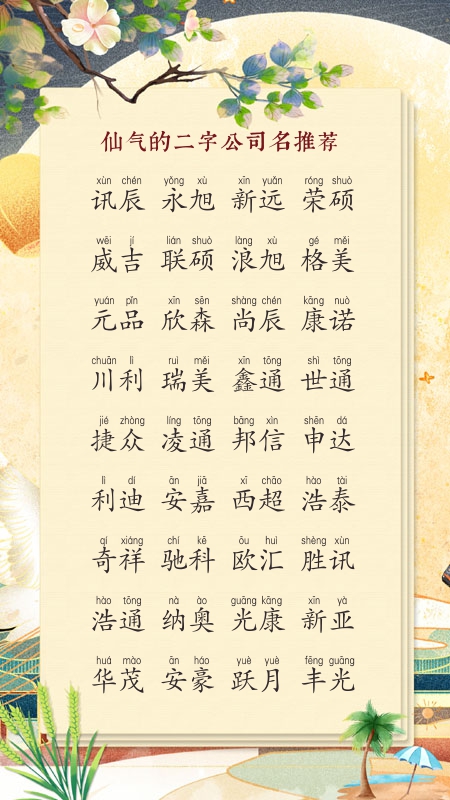 仙气的二字公司名推荐
xùn chén yǒng xù xīn yuǎn róng shuò
讯辰 永旭 新远 荣硕
wēi jí lián shuò làng xù gé měi
威吉 联硕 浪旭 格美
yuán pǐn xīn sēn shàng chén kāng nuò
元品 欣森 尚辰 康诺
chuān lì ruì měi xīn tōng shì tōng
川利 瑞美 鑫通 世通
jié zhòng líng tōng bāng xìn shēn dá
捷众 凌通 邦信 申达
lì dí ān jiā xī chāo hào tài
利迪 安嘉 西超 浩泰
qí xiáng chí kē ōu huì shèng xùn
奇祥 驰科 欧汇 胜讯
hào tōng nà ào guāng kāng xīn yà
浩通 纳奥 光康 新亚
huá mào ān háo yuè yuè fēng guāng
华茂 安豪 跃月 丰光